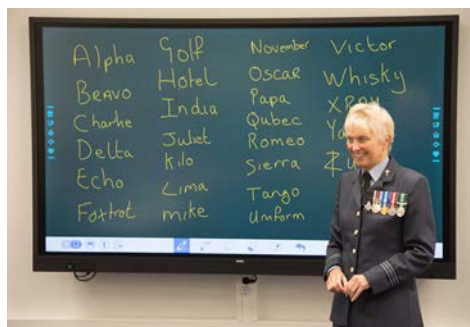 Alpha
BRAVO
Charlie
Delta
Echo
Foxtrot
Golf
Hotel
India
Juliet
Kilo
Lima
mike
November
OSCAR
Papa
Qubec
Romeo
Sierra
Tango
Uniform
Victor
Whisky
XRAY
Ya
Zu